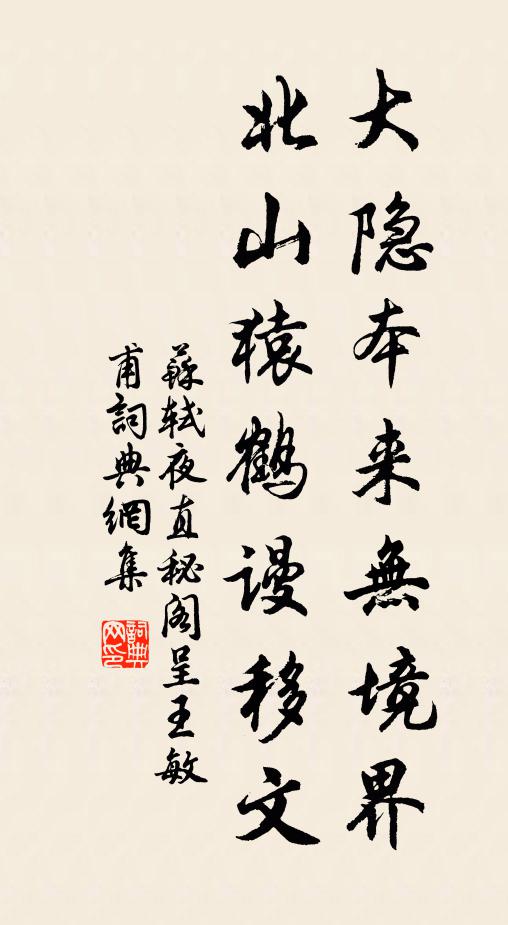 大隐本来無境界
北山猿鶴謾移文
蘇軾夜直秘阁呈王敏
甫詞典網集
詞典网印